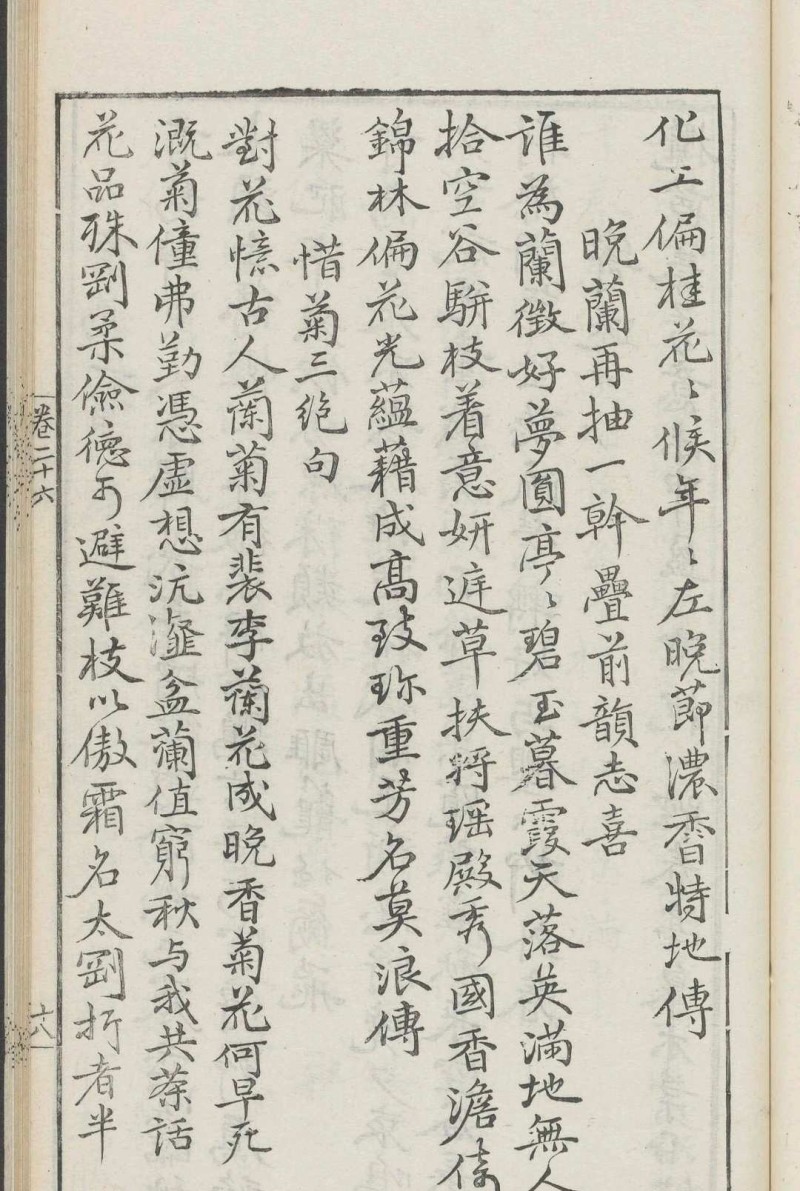 化工偏桂花〻候年〻左晚莭濃香特地傳
晚蘭再抽一幹疊前韻志喜
誰為蘭徴好夢圓亭〻碧玉暮霞天落英滿地無人
拾空谷駢枝着意妍遅草扶將瑶殿秀國香澹倚
錦林偏花光蘊藉成高致珎重芳名莫浪傳
惜菊三絶句
對花憶古人蘭菊有裴李蘭花成晚香菊花何早死
溉菊僮弗勤憑虛想沆瀣盆蘭值窮秋与我共茶話
花品殊剛柔儉德可避難枝以傲霜名太剛折者半
卷二十六
六八